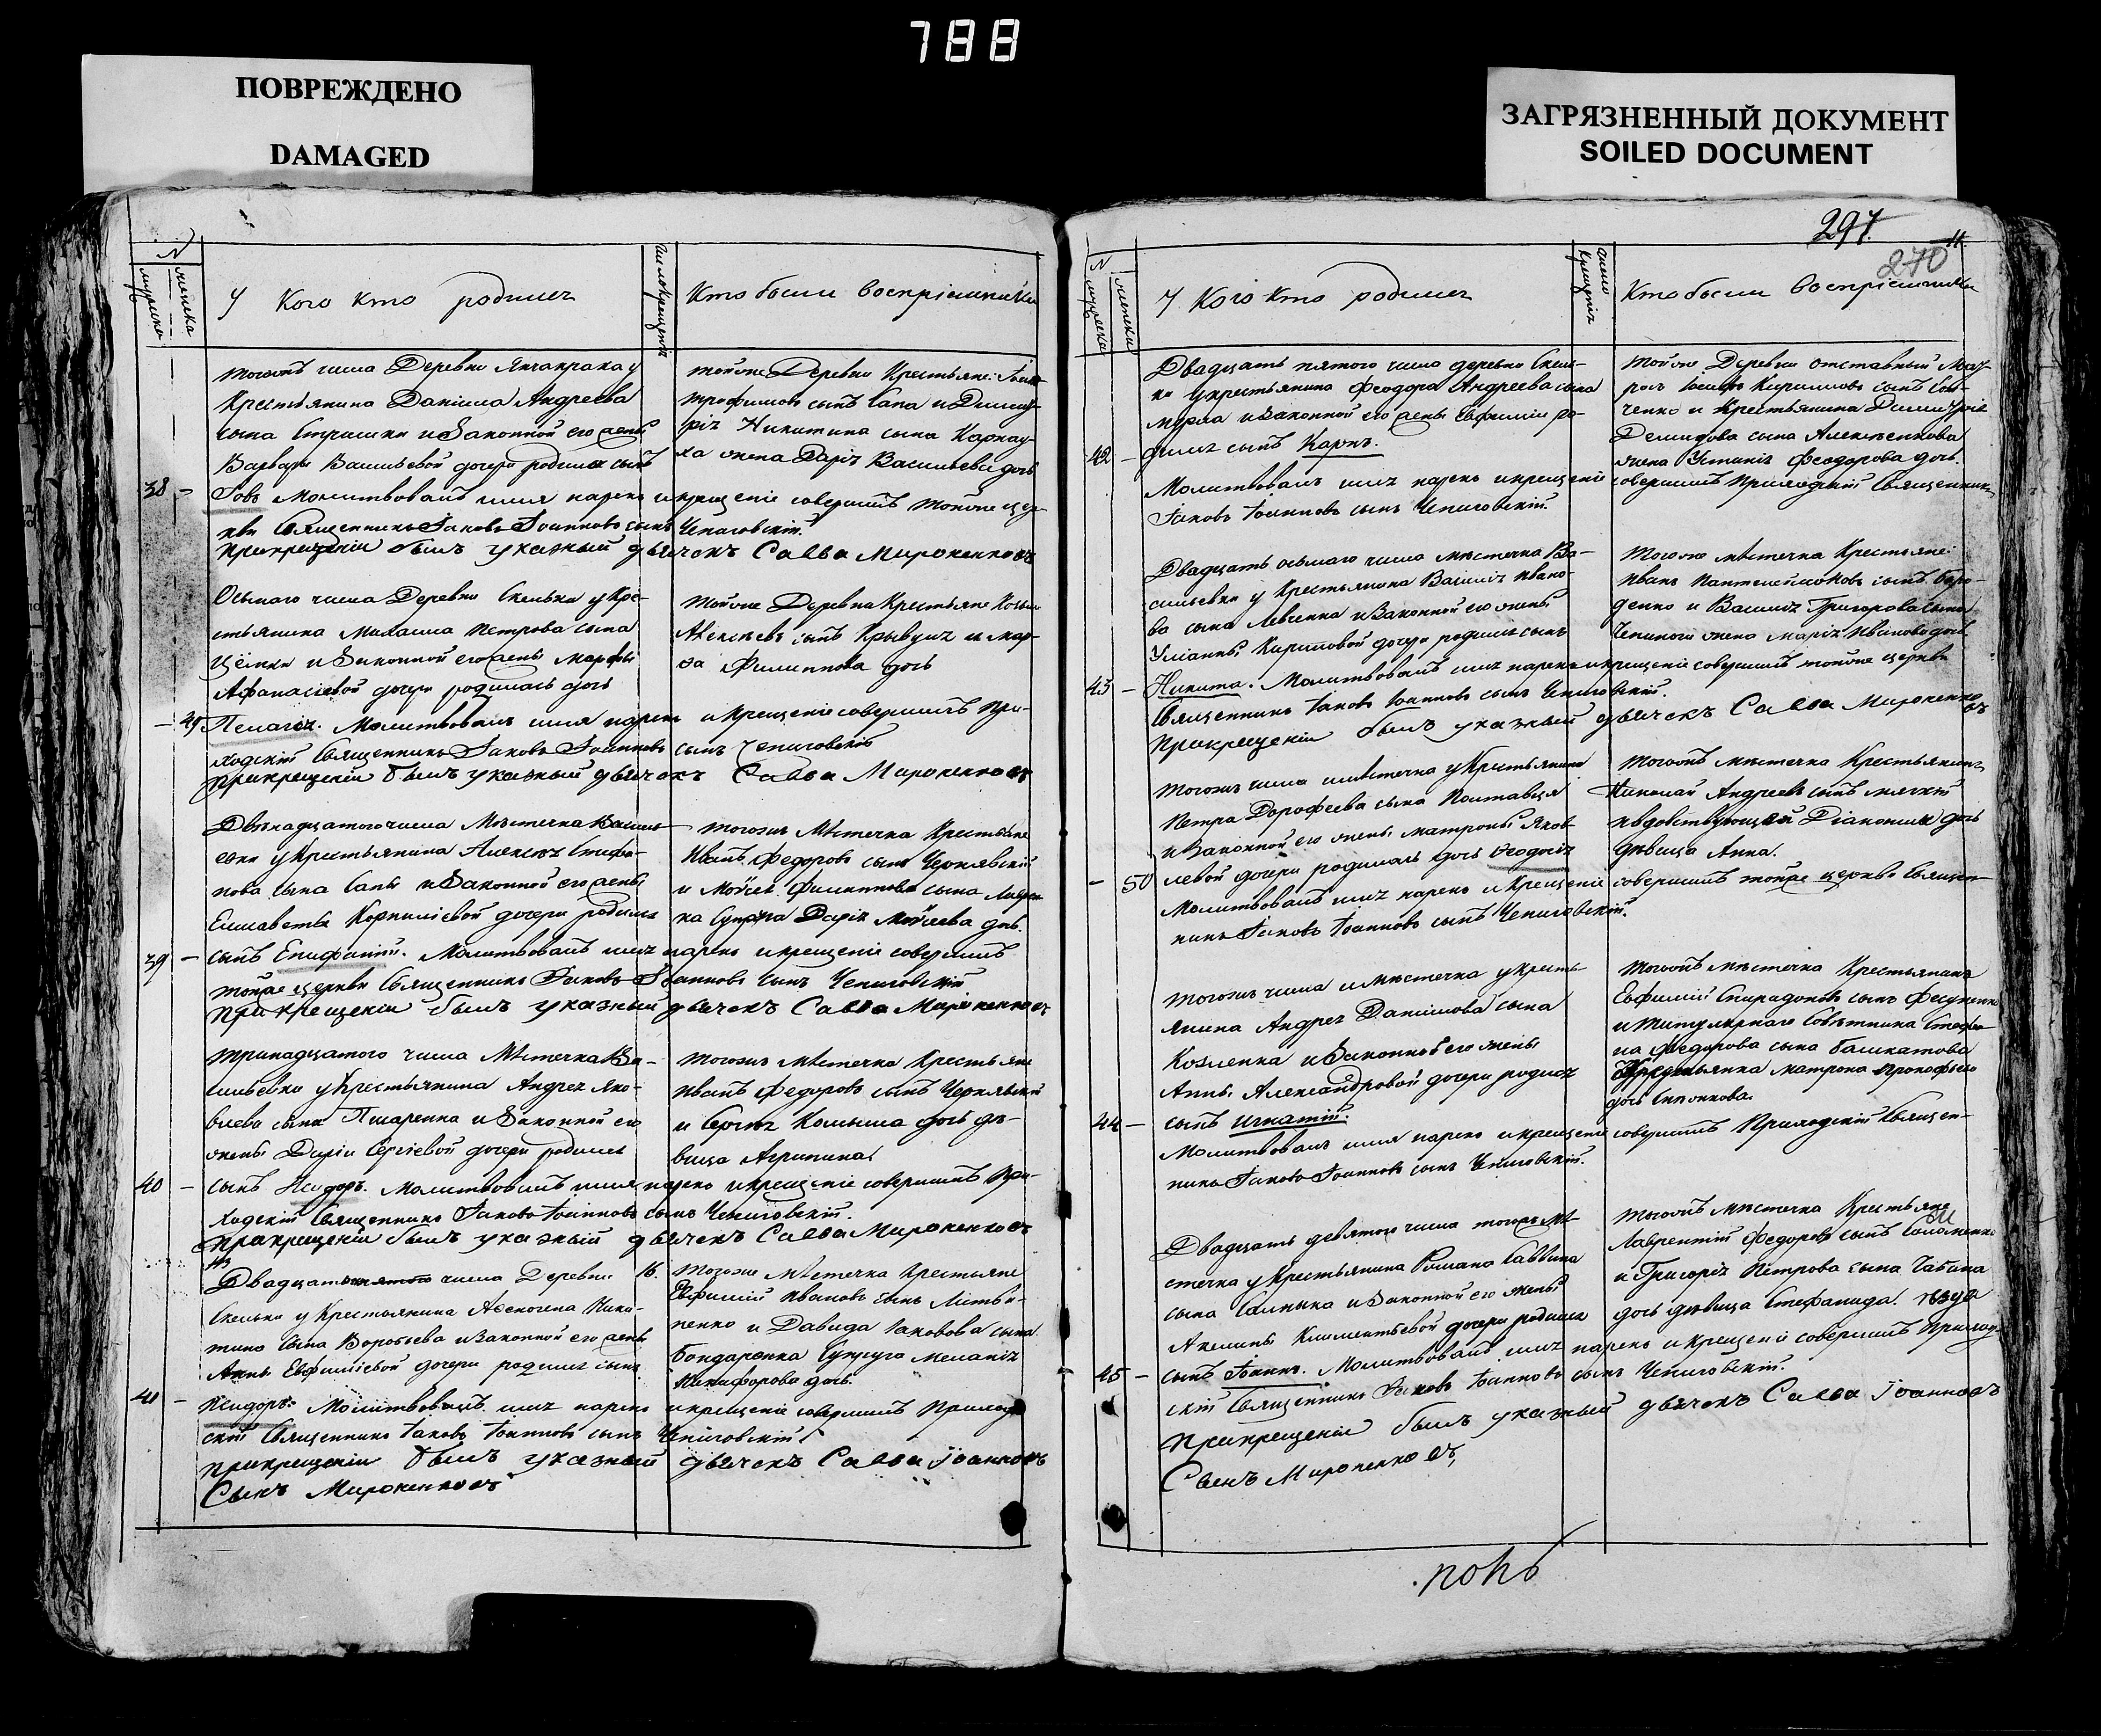 788
ПОВРЕЖДЕНО
DAMAGED
ЗАГРЯЗНЕННЫЙ ДОКУМЕНТ
SOILED DOCUMENT
N
У Кого кто родился
Кто были воспріемники
тогожъ числа Деревни Янчакрака у
Крестьянина Даніила Андреева
сына Стришки и Законной его жены
Варвары Васильевой дочери родился сынъ
38 - Іовъ Молитвовалъ имя нарекъ и крещеніе совершилъ тойже цер-
кви Священникъ Іаковъ Іоанновъ сынъ Чепиговскій.
При крещеніи былъ указный дьячекъ Савва Мироненковъ
тойже Деревни Крестьяне:
Трофимовъ сынъ Сапа и Димит-
рія Никитина сына Карнау-
ха жена Дарія Васильева дочь
Осьмаго числа Деревни Скельки у Кре-
стьянина Михаила Петрова сына
и Законной его жены Марфы
Афанасіевой дочери родилась дочь
- 49. Пелагія. Молитвовалъ имя нарекъ и крещеніе совершилъ При-
ходскій Священникъ Іаковъ Іоанновъ сынъ Чепиговскій
При крещеніи былъ указный дьячекъ Савва Мироненковъ
тойже Деревни Крестьяне Козьма
Алексѣевъ сынъ Кривуля и Мар-
Филиппова дочь
Двѣнадцатого числа Мѣстечка Василь-
евки у Крестьянина Алексѣя Стефа-
нова сына Сапы и Законной его жены
Елисаветы Корниліевой дочери родился
39 - сынъ Епифаній. Молитвовалъ имя нарекъ и крещеніе совершилъ
тойже церкви Священникъ Іаковъ Іоанновъ сынъ Чепиговскій
При крещеніи былъ указный дьячекъ Савва Мироненковъ
тогожъ Мѣстечка Крестьяне
Иванъ Федоровъ сынъ Чернявскій
и Моѵсея Филиппова сына
ка супруга Дарія Моѵсеева дочь.
Тринадцатого числа Мѣстечка Ва-
сильевки у Крестьянина Андрея Яко-
влева сына Писаренка и Законной его
жены Даріи Сергіевой дочери родился
40 - сынъ Исидоръ. Молитвовалъ имя нарекъ и крещеніе совершилъ При-
ходскій Священникъ Іаковъ Іоанновъ сынъ Чепиговскій.
При крещеніи былъ указный дьячекъ Савва Мироненковъ
тогожъ Мѣстечка Крестьяне
Иванъ Федоровъ сынъ Чернявскій
и Сергія Комыша дочь дѣ-
вица Агрипина.
числа Деревни 16.
Скельки у Крестьянина Аѳеногена Ники-
тина сына Воробьева и Законной его жены
Анны Евфиміевой дочери родился сынъ
41 - Исидоръ. Молитвовалъ имя нарекъ и крещеніе совершилъ Приход-
скій Священникъ Іаковъ Іоанновъ сынъ Чепиговскій.
При крещеніи былъ указный дьячекъ Савва Іоанновъ
Сынъ Мироненковъ
тогоже Мѣстечка Крестьяне
Евфимій Ивановъ сынъ Литви-
ненко и Давида Іаковова сына
Бондаренка супруга Меланія
Никифорова дочь.
297.
270
N
У Кого кто родился
число крещенія
Кто были Воспріемники
Двадцать пятого числа деревни Скель-
ки у крестьянина Феодора Андреева сына
и Законной его жены Евфиміи ро-
42 - дился сынъ Карпъ.
Молитвовалъ имя нарекъ и крещеніе совершилъ Приходскій Священникъ
Іаковъ Іоанновъ сынъ Чепиговскій.
тойже Деревни отставный
Іосифъ Кирилловъ сынъ
ченко и Крестьянина Димитрія
Демидова сына Алексѣенкова
жена Устинія Феодорова дочь.
Двадцать осьмаго числа мѣстечка Ва-
сильевки у Крестьянина Василія Ивано-
ва сына Левченка и Законной его жены
Уліанны Кириловой дочери родился сынъ
43 - Никита. Молитвовалъ имя нарекъ и крещеніе совершилъ тойже церкви
Священникъ Іаковъ Іоанновъ сынъ Чепиговскій.
При крещеніи былъ указный дьячекъ Савва Мироненковъ
тогоже мѣстечка Крестьяне:
Иванъ Пантелеймоновъ сынъ Боро-
денко и Василія Григорова сына
жена Марія Иванова дочь.
тогожъ числа и мѣстечка у Крестьянина
Петра Дорофеева сына Полтавця
и Законной его жены Матроны Яков-
- 50 левой дочери родилась дочь Ѳеодосія
Молитвовалъ имя нарекъ и Крещеніе совершилъ тойже церкви Священ-
никъ Іаковъ Іоанновъ сынъ Чепиговскій.
тогожъ мѣстечка Крестьянинъ
Николай Андреевъ сынъ
и вдовствующей Діаконши дочь
дѣвица Анна.
тогожъ числа и мѣстечка у кресть-
янина Андрея Даніилова сына
Козленка и Законной его жены
Анны Александровой дочери родился
44 - сынъ Игнатій.
Молитвовалъ имя нарекъ и крещеніе совершилъ Приходскій Священ-
никъ Іаковъ Іоанновъ сынъ Чепиговскій.
тогожъ мѣстечка Крестьянинъ
Евфимій Спиридоновъ сынъ
и Титулярнаго Совѣтника Стефа-
на Федорова сына Башкатова
Крестьянка Матрона Прокофьева
дочь
Двадцать девятого числа тогожъ мѣ-
стечка у Крестьянина Романа Саввина
сына и Законной его жены
Акилины Климентьевой дочери родился
45 - сынъ Іоаннъ. Молитвовалъ имя нарекъ и крещеніе совершилъ Приход-
скій Священникъ Іаковъ Іоанновъ сынъ Чепиговскій.
При крещеніи былъ указный дьячекъ Савва Іоанновъ
Сынъ Мироненковъ,
тогожъ мѣстечка Крестьяне
Лаврентій Федоровъ сынъ
и Григорія Петрова сына
дочь дѣвица Стефанида.